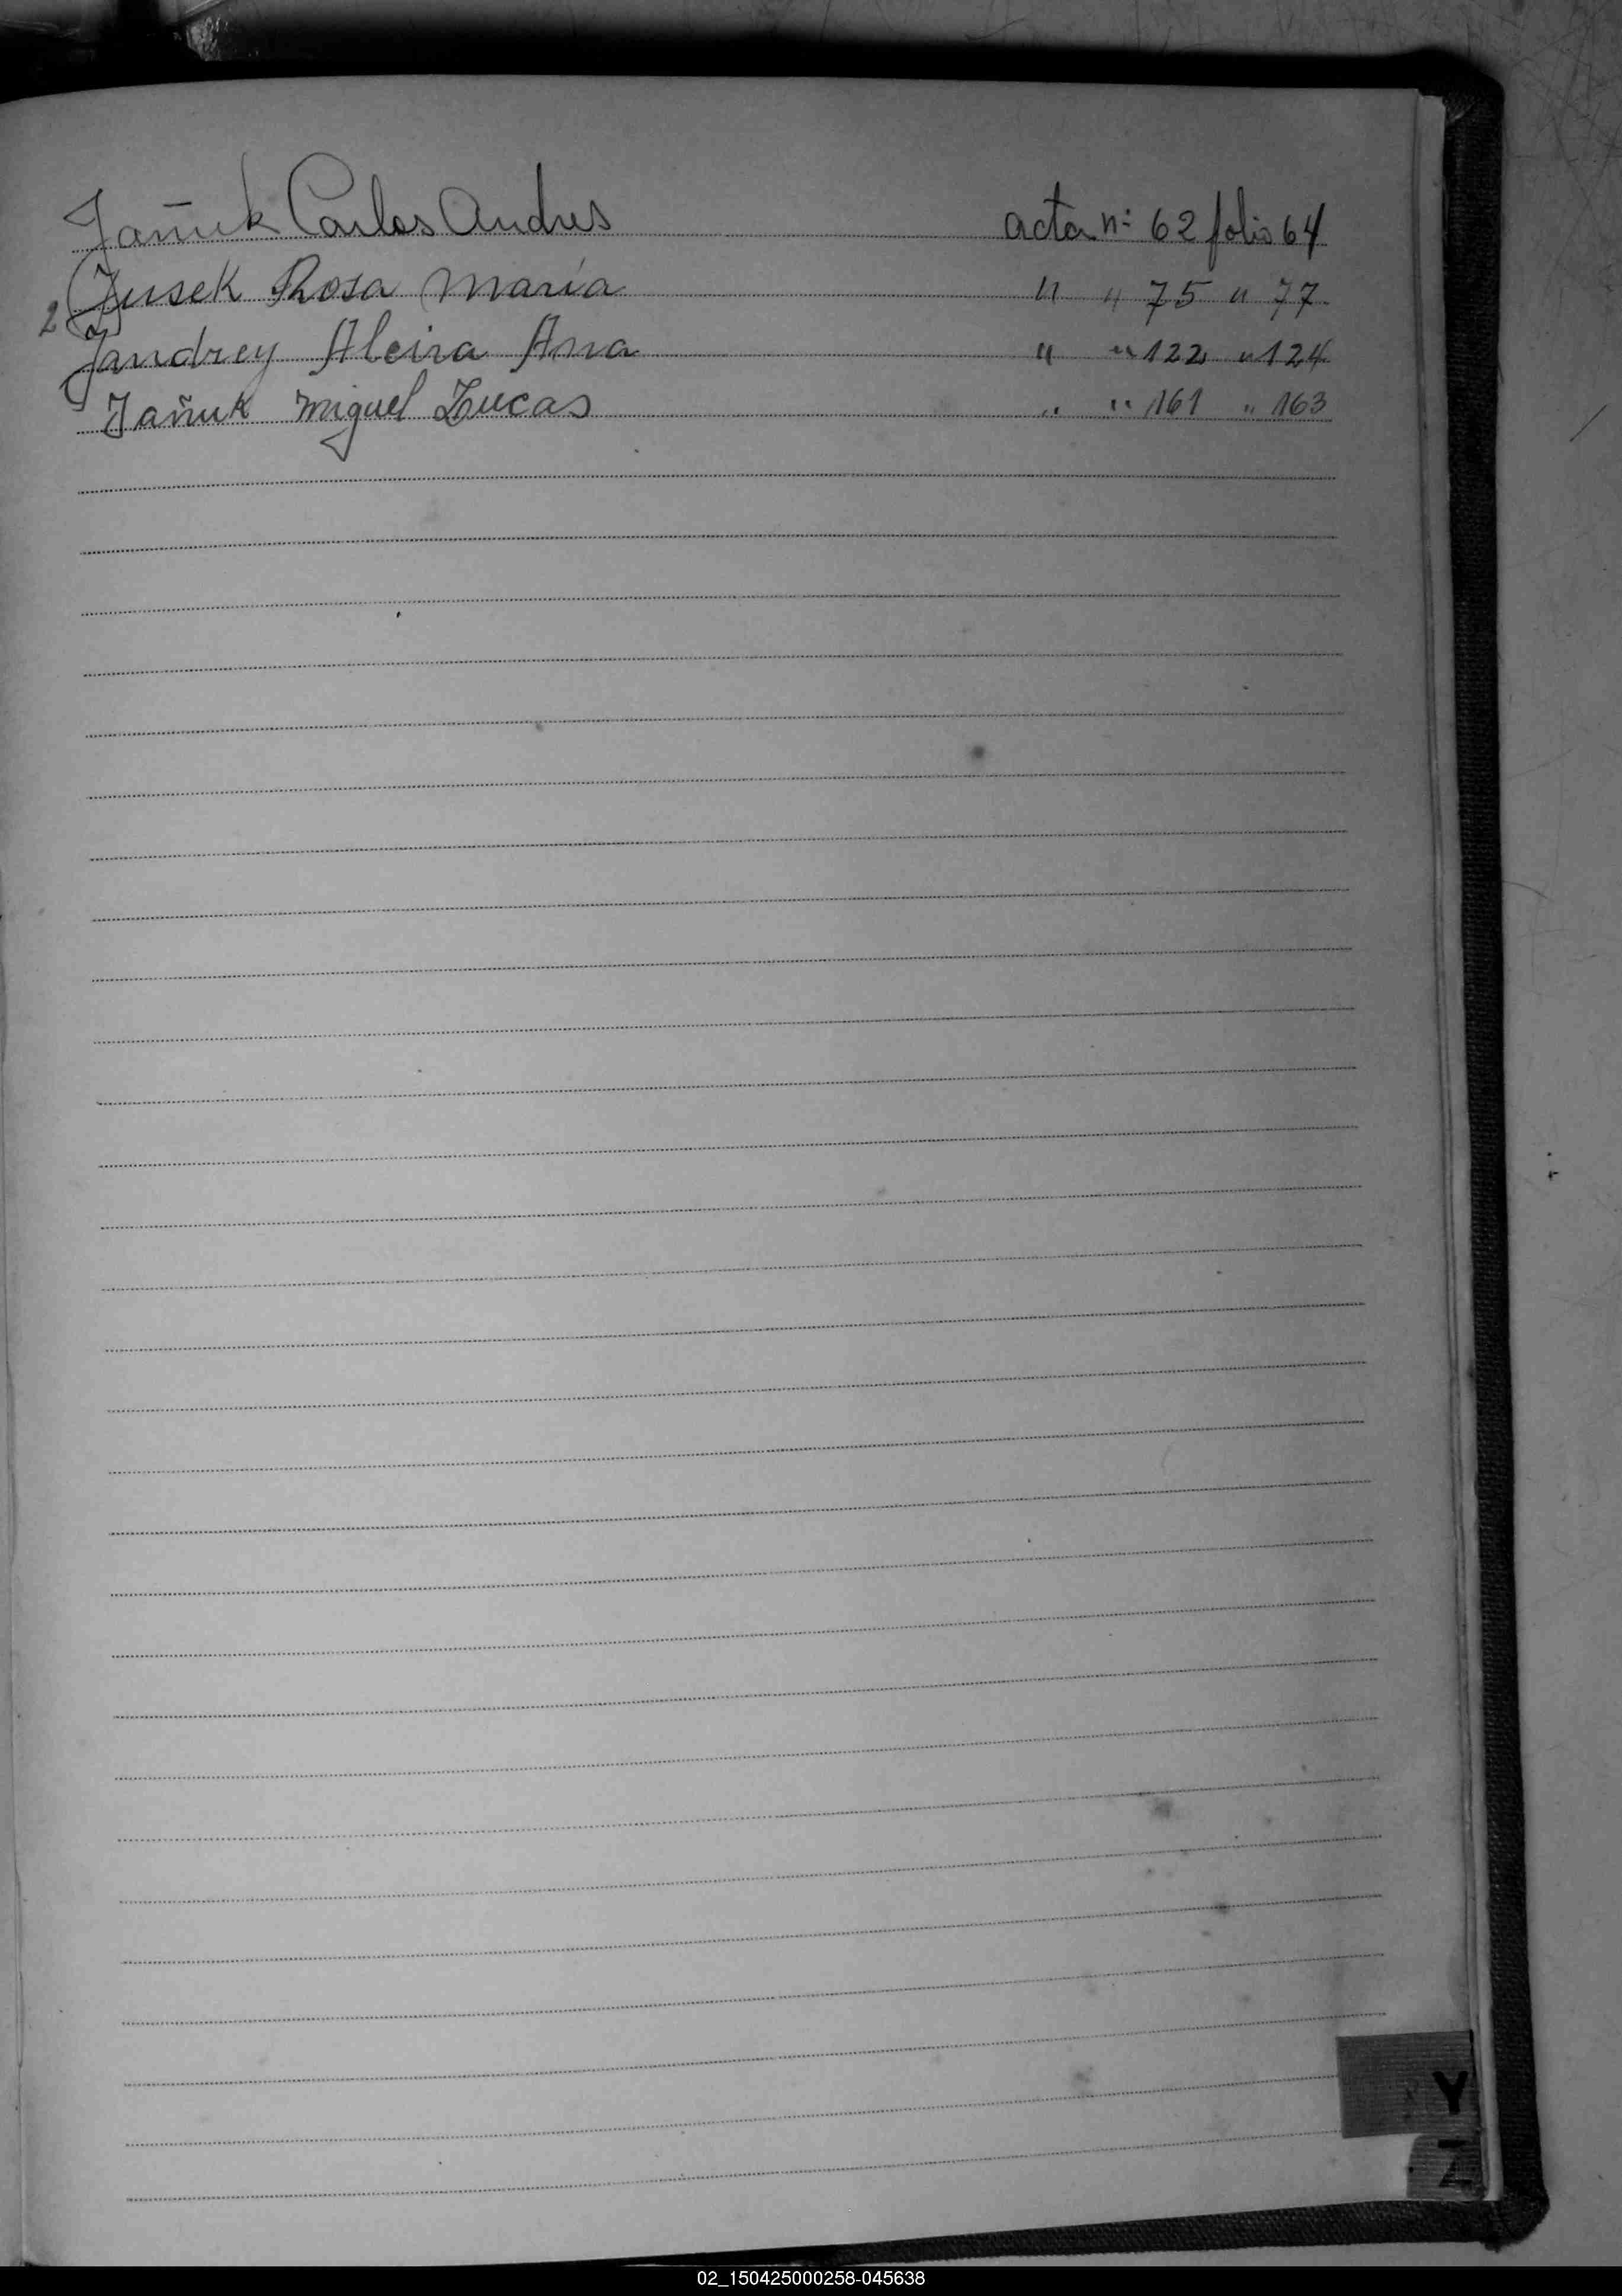 Yañuk Carlos Andres acta nº 62 folio 64
2 Jusek Rosa María " " 75 " 77
Jandrey Alcira Ana " " 122 " 124
Yañuk Miguel Lucas " " 161 " 163
Y
Z
02_150425000258-045638